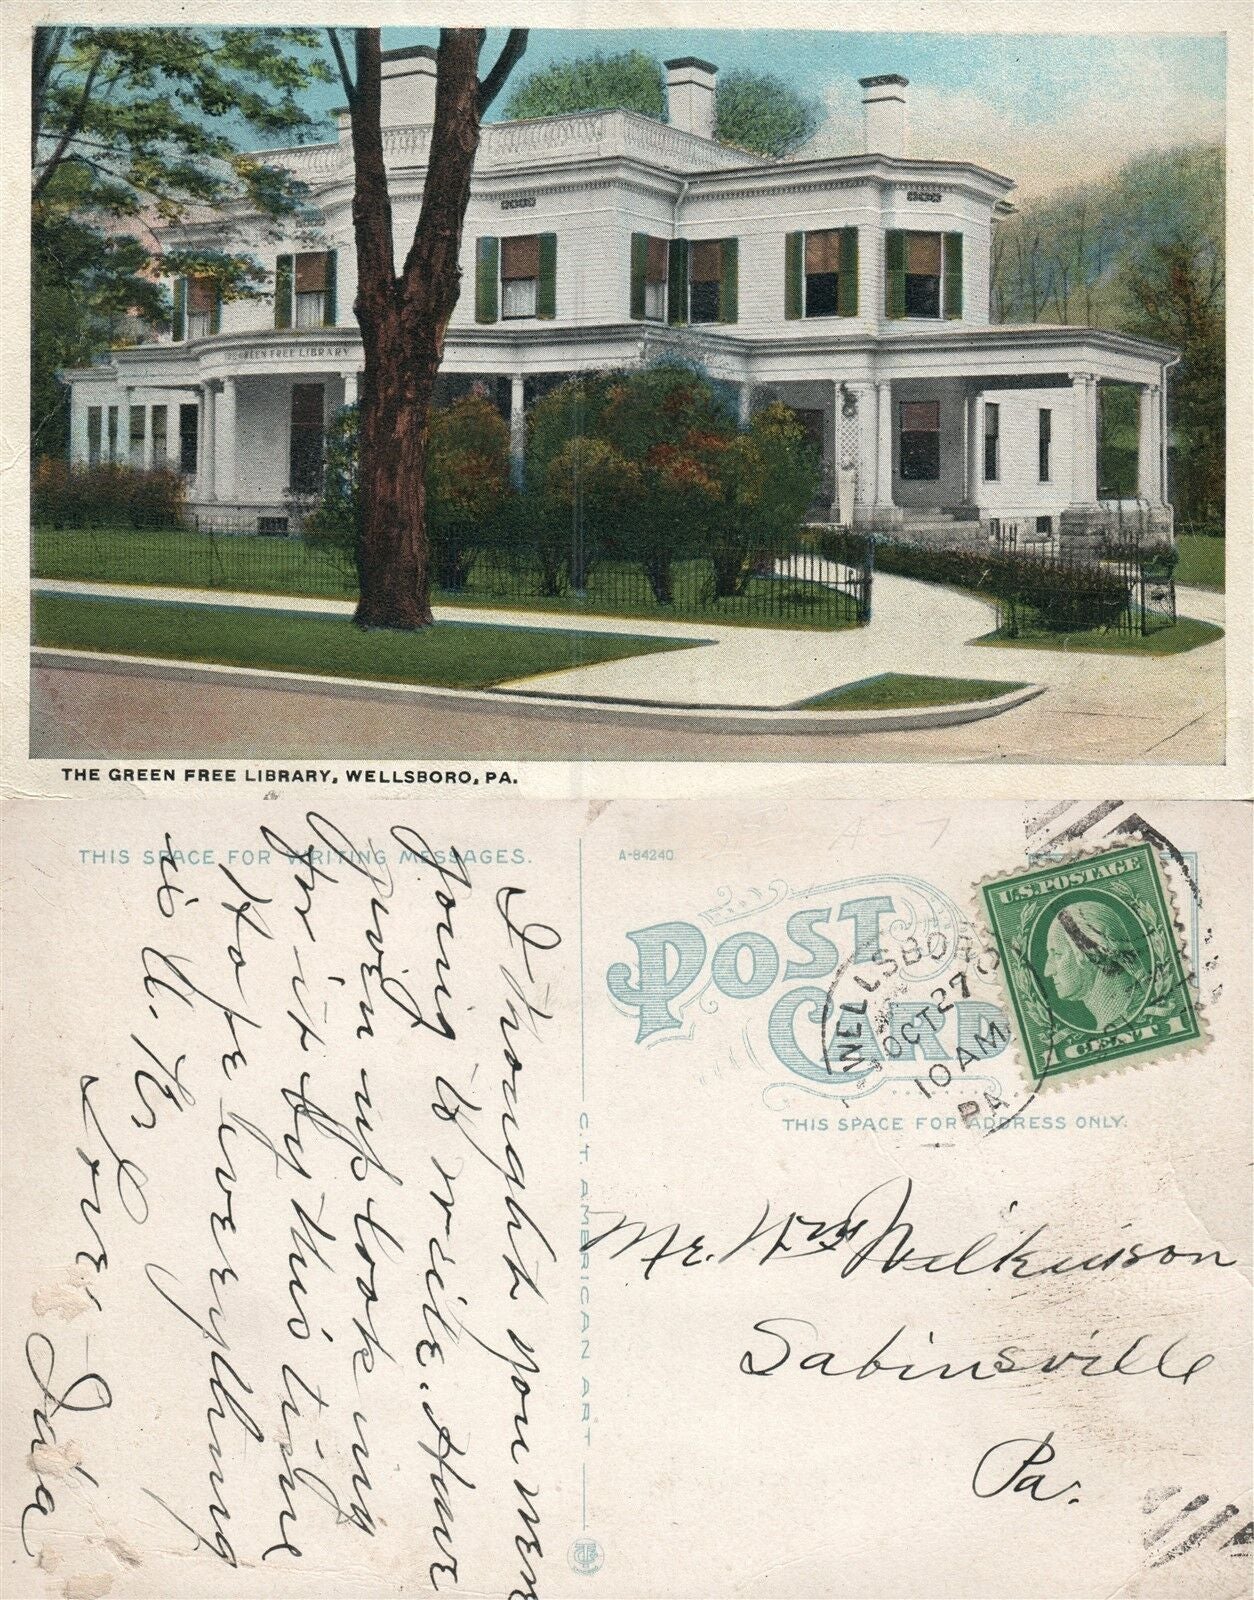 THE GREEN FREE LIBRARY
THE GREEN FREE LIBRARY, WELLSBORO, PA.
THIS SPACE FOR WRITING MESSAGES.
I thought you were
going to write. Have
given up looking
for it by this time
Hope everything
is O. K.
Love - Ida
C. T. AMERICAN ART
A-84240
POST CARD
THIS SPACE FOR ADDRESS ONLY.
WELLSBORO
OCT 27
10 AM
PA.
U.S. POSTAGE
1 CENT 1
Mr. Wm Wilkinson
Sabinsville
Pa.